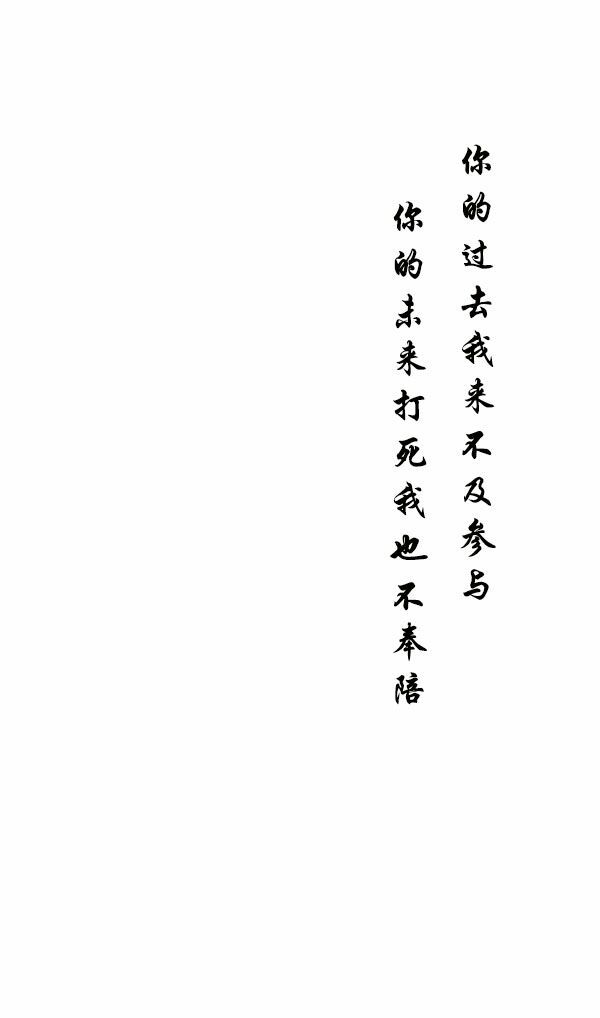 你的过去我来不及参与
你的未来打死我也不奉陪